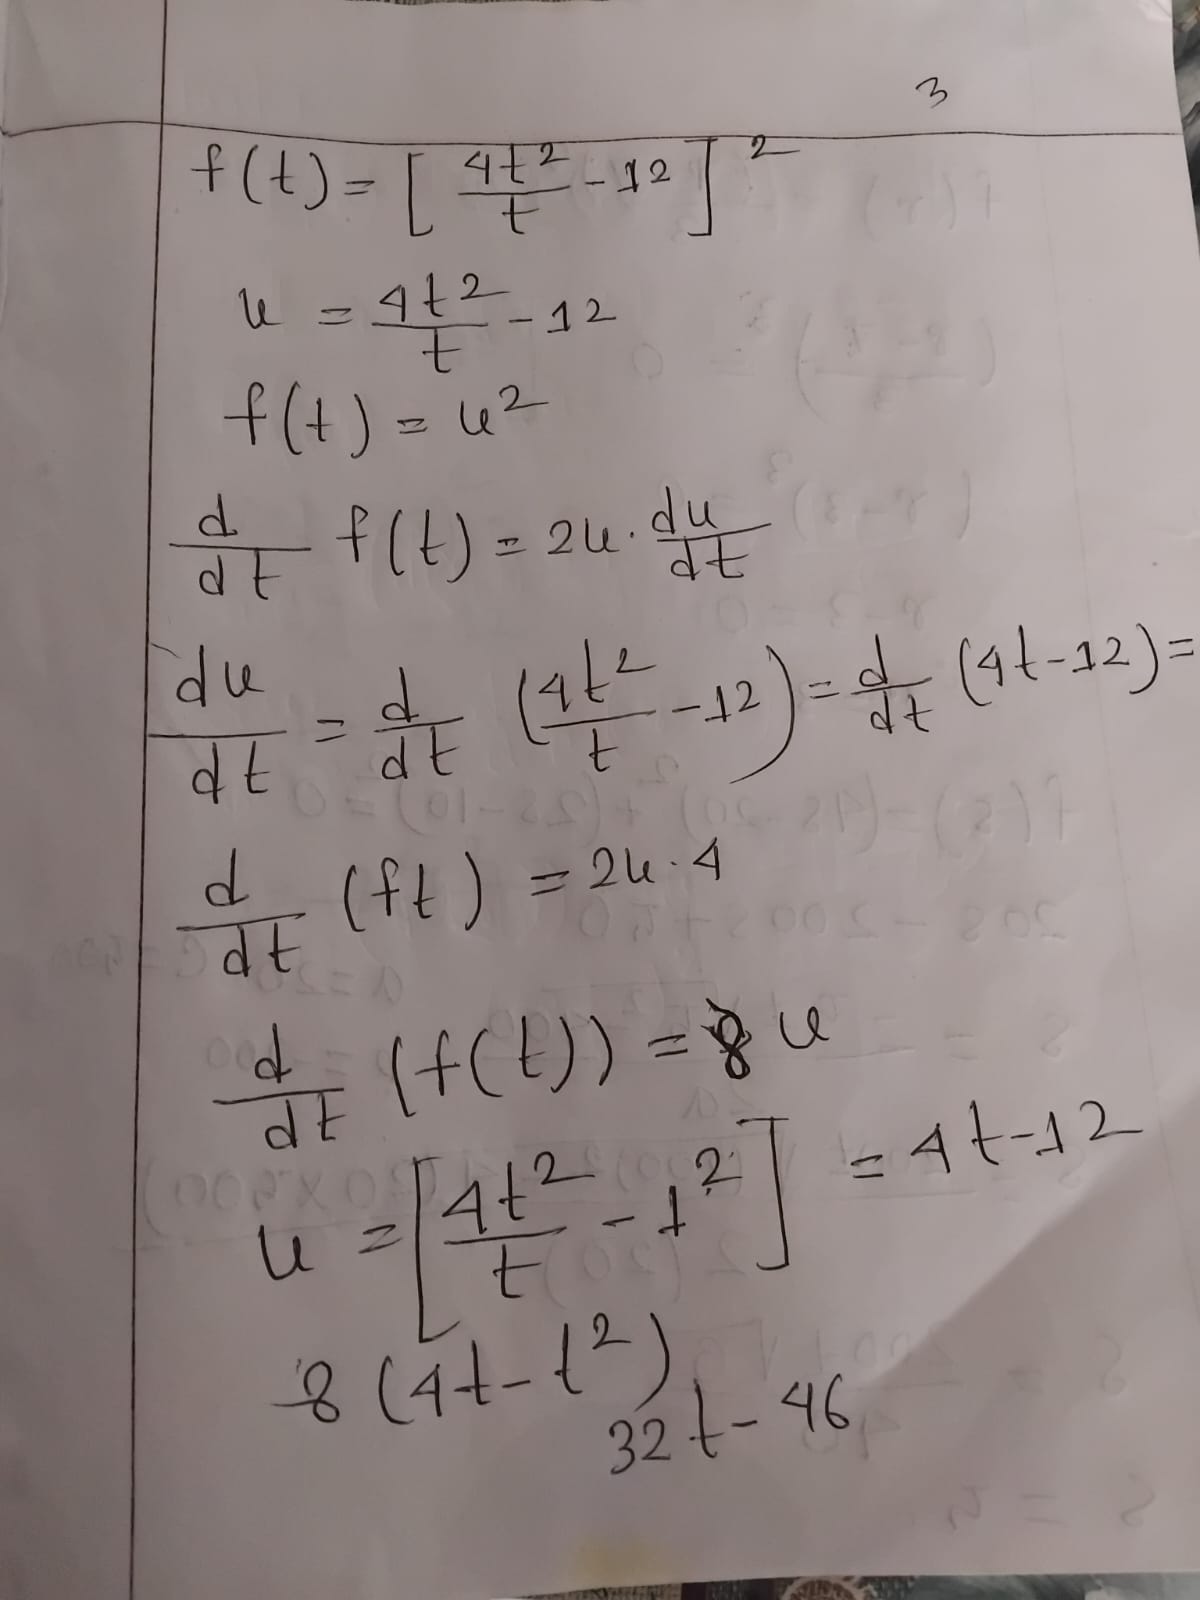 3
f(t) = [4t²/t - 12]²
u = 4t²/t - 12
f(t) = u²
d/dt f(t) = 2u · du/dt
du/dt = d/dt (4t²/t - 12) = d/dt (4t - 12) =
d/dt (ft) = 2u · 4
d/dt (f(t)) = 8 u
u = [4t²/t - t²] = 4t - 12
8 (4t - t²)
32t - 46